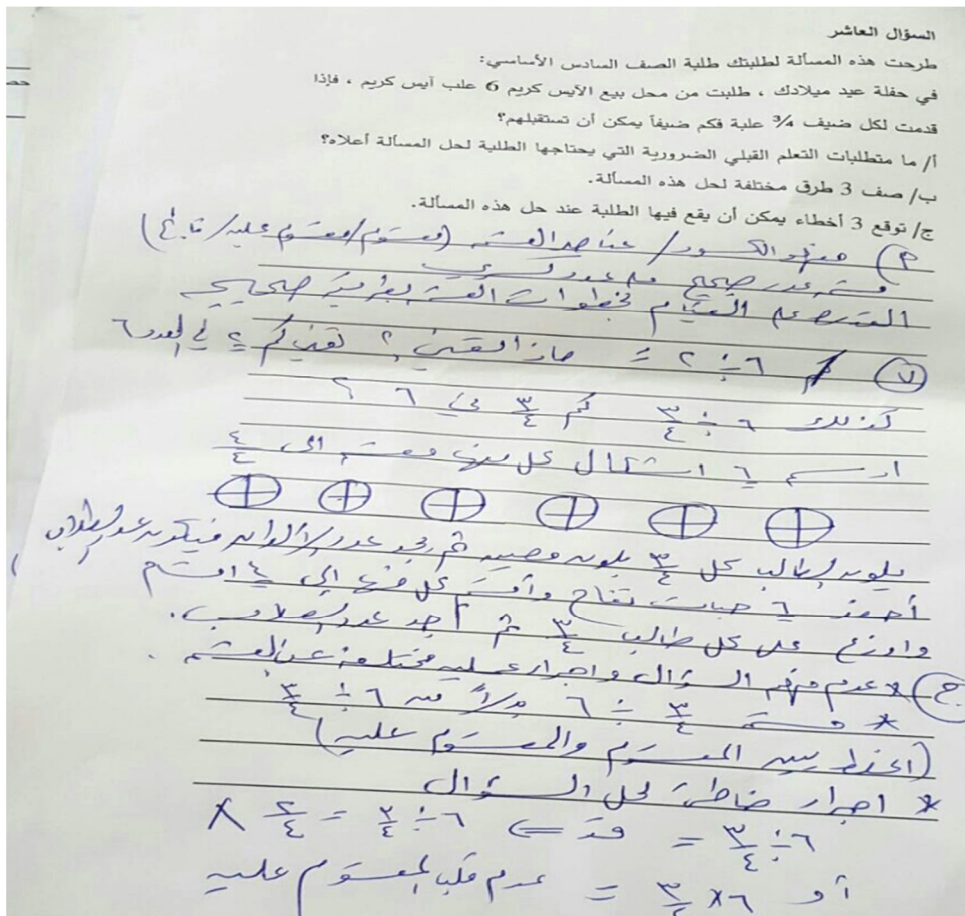 السؤال العاشر
طرحت هذه المسألة لطلبتك طلبة الصف السادس الأساسي:
في حفلة عيد ميلادك ، طلبت من محل بيع الآيس كريم 6 علب آيس كريم ، فإذا
قدمت لكل ضيف ¾ علبة فكم ضيفاً يمكن أن تستقبلهم؟
أ/ ما متطلبات التعلم القبلي الضرورية التي يحتاجها الطلبة لحل المسألة أعلاه؟
ب/ صف 3 طرق مختلفة لحل هذه المسألة.
ج/ توقع 3 أخطاء يمكن أن يقع فيها الطلبة عند حل هذه المسألة.
مفهوم الكسور / عناصر القسمة (مقسوم/مقسوم عليه/ناتج)
قسمة عدد صحيح على عدد كسري
القدرة على القيام بخطوات القسمة بطريقة صحيحة
ب) ٦ ÷ ٢ = ماذا تعني ؟ تعني كم ٢ في العدد ٦
كذلك ٦ ÷ ٣/٤ كم ٣/٤ في ٦ ؟
ارسم ٦ اشكال كل منها مقسم الى ٤/٤
يلون الطالب كل ٣/٤ بلون معين ثم يجد عدد الألوان فيكون عدد الطلاب
أحضر ٦ حبات تفاح وأقسم كل منها إلى ٤ اقسام
واوزع على كل طالب ٣/٤ ثم أجد عدد الطلاب.
ج) * عدم فهم السؤال واجراء عملية مختلفة عن القسمة .
* قسمة ٣/٤ ÷ ٦ بدلاً من ٦ ÷ ٣/٤
(الخلط بين المقسوم والمقسوم عليه)
* اجراء خاطئ لحل السؤال
٦ ÷ ٣/٤ = ⇐ ٦ ÷ ٣/٤ = ٢/٤ X
أو ٦ × ٣/٤ = عدم قلب المقسوم عليه